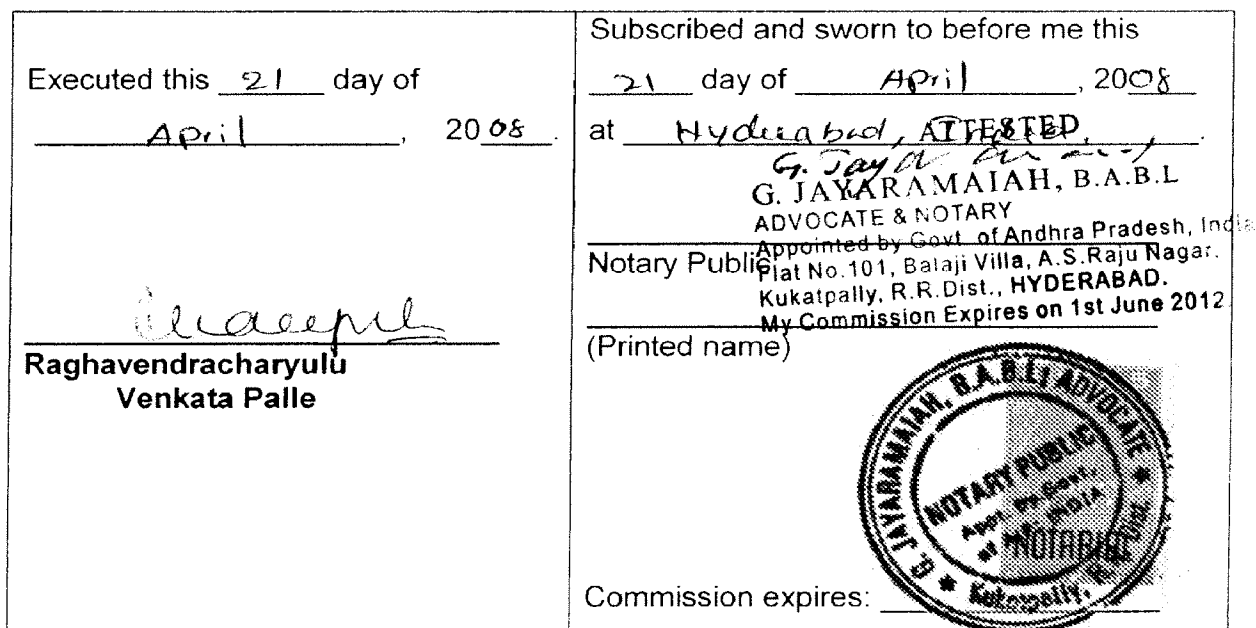 Executed this 21 day of
April, 2008.
Raghavendracharyulu
Venkata Palle
Subscribed and sworn to before me this
21 day of April, 2008
at Hyderabad,
ATTESTED
G. JAYARAMAIAH, B.A.B.L
ADVOCATE & NOTARY
Appointed by Govt. of Andhra Pradesh, India
Notary Public
Flat No.101, Balaji Villa, A.S.Raju Nagar.
Kukatpally, R.R.Dist., HYDERABAD.
My Commission Expires on 1st June 2012
(Printed name)
G. JAYARAMAIAH, B.A.B.L; ADVOCATE
NOTARY PUBLIC
Appt. By. Govt.
of INDIA
Kukatpally, R.R. Dist.
Commission expires: